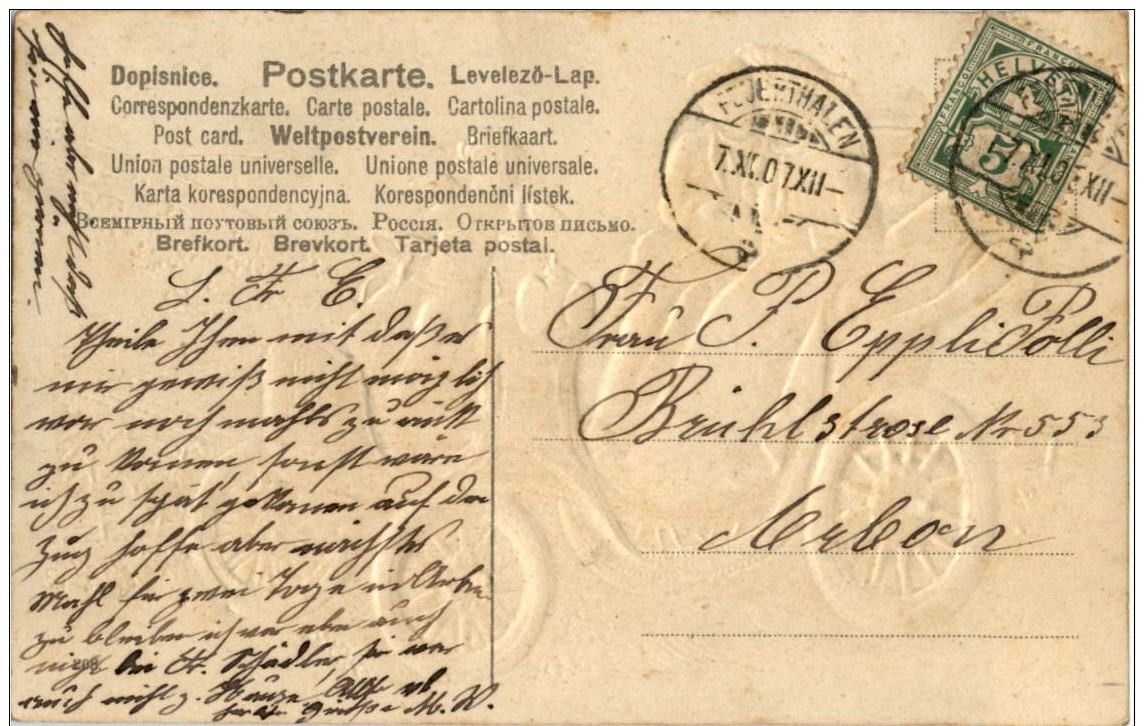 Dopisnice. Postkarte. Levelező-Lap.
Correspondenzkarte. Carte postale. Cartolina postale.
Post card. Weltpostverein. Briefkaart.
Union postale universelle. Unione postale universale.
Karta korespondencyjna. Korespondenční lístek.
Всемірный поутовый союзъ. Россія. Открытое письмо.
Brefkort. Brevkort. Tarjeta postal.
FEUERTHALEN
7.XI.07.XII–
HELVETIA
FRANCO
5
7.XI.07.XII–
L. Fr E.
Theile Ihnen mit daß es
mir gewiß nicht möglich
war noch mahls zurück
zu komen, sonst wäre
ich zu spät gekomen auf den
Zug hoffe aber nächstes
Mahl für zwei Tage in Arbon
zu bleiben ich war eben auch
nicht bei Fr. Schädler, sie war
auch nicht z. Hause
Grüße M. W.
208
Frau P. Eppli Polli
Brühlstrase Nr 553
Arbon